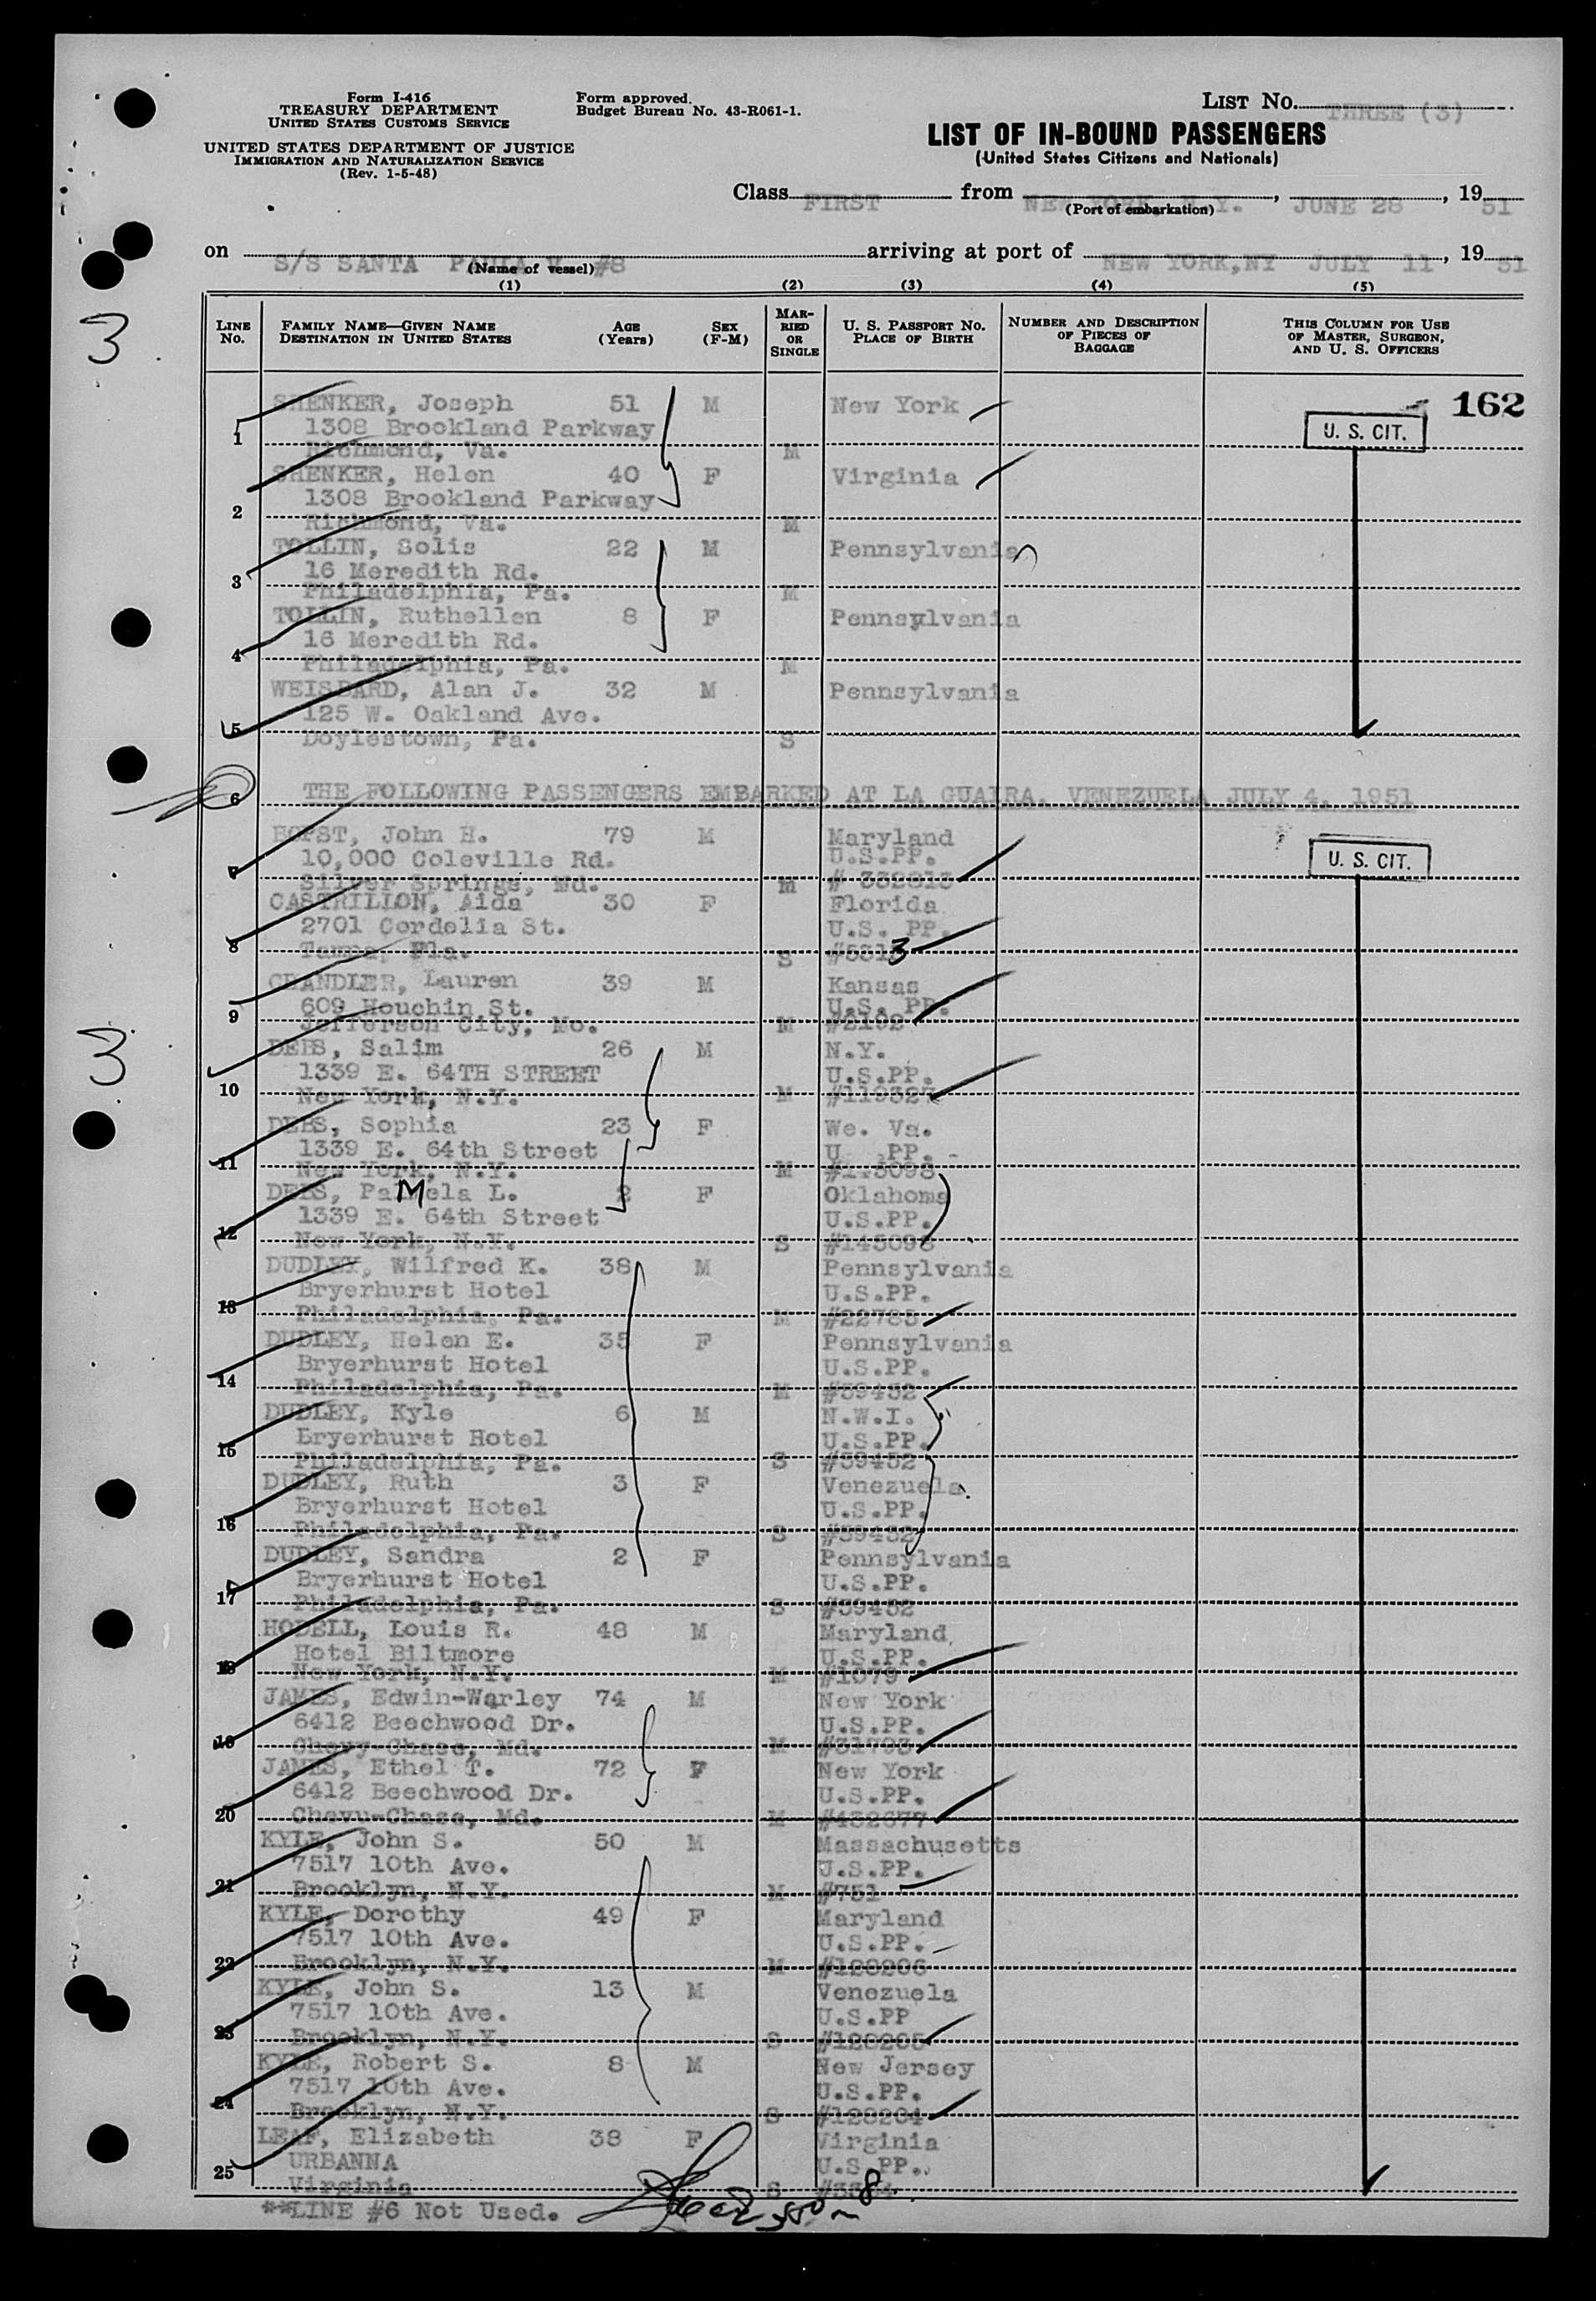 Form I-416
TREASURY DEPARTMENT
UNITED STATES CUSTOMS SERVICE
UNITED STATES DEPARTMENT OF JUSTICE
IMMIGRATION AND NATURALIZATION SERVICE
(Rev. 1-5-48)
Form approved.
Budget Bureau No. 43-R061-1.
LIST NO. THREE (3)
LIST OF IN-BOUND PASSENGERS
(United States Citizens and Nationals)
Class FIRST from NEW YORK, N.Y., JUNE 28, 19 51
(Port of embarkation)
on S/S SANTA PAULA V. #8 arriving at port of NEW YORK,NY JULY 11, 19 51
(Name of vessel)
(1) (2) (3) (4) (5)
LINE NO. FAMILY NAME—GIVEN NAME DESTINATION IN UNITED STATES AGE (Years) SEX (F-M) MARRIED OR SINGLE U. S. PASSPORT NO. PLACE OF BIRTH NUMBER AND DESCRIPTION OF PIECES OF BAGGAGE THIS COLUMN FOR USE OF MASTER, SURGEON, AND U. S. OFFICERS
3
162
SHENKER, Joseph 51 M New York
1308 Brookland Parkway U. S. CIT.
1 Richmond, Va. M
SHENKER, Helen 40 F Virginia
1308 Brookland Parkway
2 Richmond, Va. M
TOLLIN, Solis 22 M Pennsylvania
16 Meredith Rd.
3 Philadelphia, Pa. M
TOLLIN, Ruthellen 8 F Pennsylvania
16 Meredith Rd.
4 Philadelphia, Pa. M
WEISBARD, Alan J. 32 M Pennsylvania
125 W. Oakland Ave.
5 Doylestown, Pa. S
6 THE FOLLOWING PASSENGERS EMBARKED AT LA GUAIRA, VENEZUELA JULY 4, 1951
BOPST, John H. 79 M Maryland
10,000 Coleville Rd. U.S.PP. U. S. CIT.
7 Silver Springs, Md. M # 332813
CASTRILLON, Aida 30 F Florida
2701 Cordelia St. U.S. PP.
8 Tampa, Fla. S #5313
CHANDLER, Lauren 39 M Kansas
609 Houchin St. U.S. PP.
9 Jefferson City, Mo. M #2192
3
DEBS, Salim 26 M N.Y.
1339 E. 64TH STREET U.S.PP.
10 New York, N.Y. M
DEBS, Sophia 23 F We. Va.
1339 E. 64th Street U PP.
11 New York, N.Y. M
DEBS, Pamela L. 2 F Oklahoma
1339 E. 64th Street U.S.PP.
12 New York, N.Y. S #145098
DUDLEY, Wilfred K. 38 M Pennsylvania
Bryerhurst Hotel U.S.PP.
13 Philadelphia, Pa. M #22785
DUDLEY, Helen E. 35 F Pennsylvania
Bryerhurst Hotel U.S.PP.
14 Philadelphia, Pa. M #59432
DUDLEY, Kyle 6 M N.W.I.
Bryerhurst Hotel U.S.PP.
15 Philadelphia, Pa. S #59432
DUDLEY, Ruth 3 F Venezuela
Bryerhurst Hotel U.S.PP.
16 Philadelphia, Pa. S #59432
DUDLEY, Sandra 2 F Pennsylvania
Bryerhurst Hotel U.S.PP.
17 Philadelphia, Pa. S #59432
HODELL, Louis R. 48 M Maryland
Hotel Biltmore U.S.PP.
18 New York, N.Y. M #1079
JAMES, Edwin-Warley 74 M New York
6412 Beechwood Dr. U.S.PP.
19 Chevy-Chase, Md. M #31793
JAMES, Ethel T. 72 F New York
6412 Beechwood Dr. U.S.PP.
20 Chevu-Chase, Md. M #432677
KYLE, John S. 50 M Massachusetts
7517 10th Ave. U.S.PP.
21 Brooklyn, N.Y. M #751
KYLE, Dorothy 49 F Maryland
7517 10th Ave. U.S.PP.
22 Brooklyn, N.Y. M #128206
KYLE, John S. 13 M Venezuela
7517 10th Ave. U.S.PP
23 Brooklyn, N.Y. S #128205
KYLE, Robert S. 8 M New Jersey
7517 10th Ave. U.S.PP.
24 Brooklyn, N.Y. S #128204
LEAF, Elizabeth 38 F Virginia
URBANNA U.S PP.
25 Virginia S
**LINE #6 Not Used.